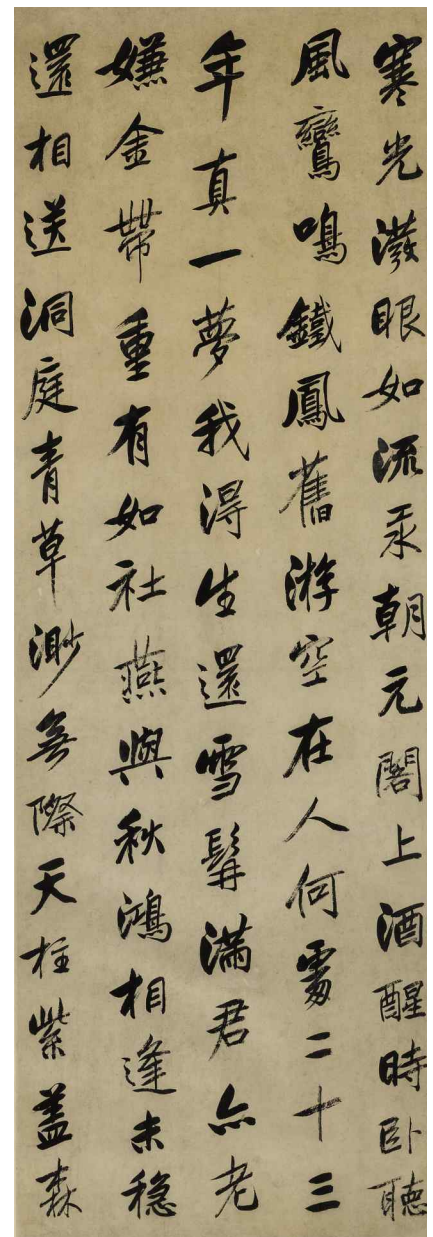 寒光潑眼如流汞朝元閣上酒醒時臥聽
風鸞鳴鐵鳳舊游空在人何處二十三
年真一夢我得生還雪髯滿君亦老
嫌金帶重有如社燕與秋鴻相逢未穩
還相送洞庭青草渺無際天柱紫蓋森